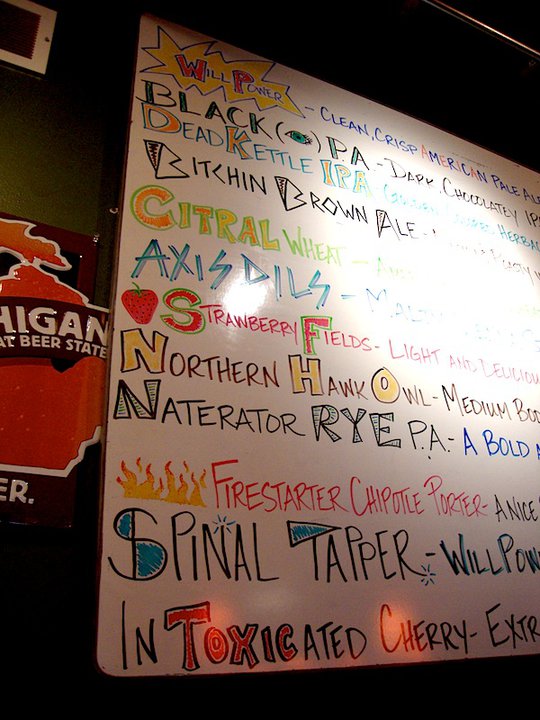 WILL POWER - CLEAN, CRISP AMERICAN PALE ALE
BLACK (👁) P.A. - DARK, CHOCOLATEY IP
DEAD KETTLE IPA - HERBA
BITCHIN BROWN ALE -
CITRAL WHEAT -
AXIS DILS -
STRAWBERRY FIELDS - LIGHT AND DELICIOU
NORTHERN HAWK OWL - MEDIUM BOD
NATERATOR RYE P.A. - A BOLD A
FIRESTARTER CHIPOTLE PORTER - A NICE
SPINAL TAPPER - WILLPOW
INTOXICATED CHERRY - EXTR
HIGAN
AT BEER STATE
ER.